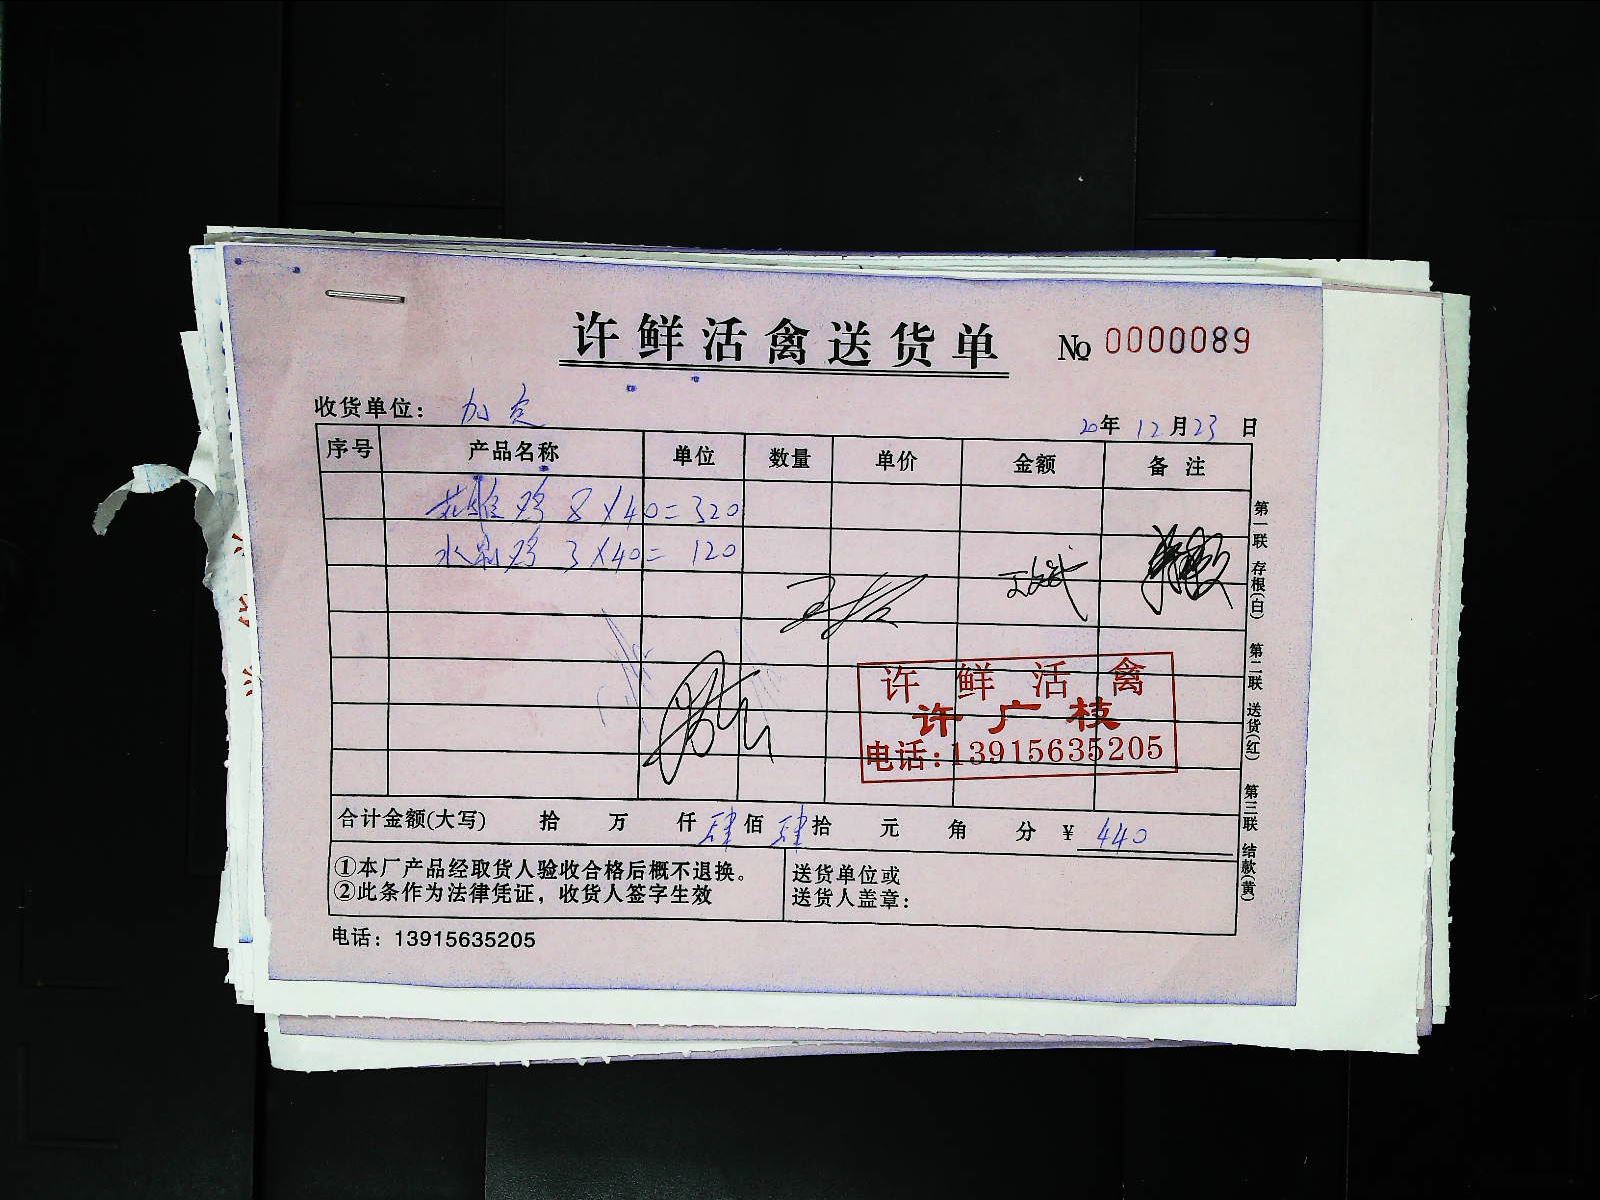 许鲜活禽送货单 № 0000089
收货单位：
20年 12月23日
序号 产品名称 单位 数量 单价 金额 备注
鸡 8×40=320
鸡 3×40= 120
许鲜活禽
许广枝
电话:13915635205
合计金额(大写) 拾 万 仟 肆佰 肆拾 元 角 分 ¥ 440
①本厂产品经取货人验收合格后概不退换。
②此条作为法律凭证，收货人签字生效
送货单位或
送货人盖章：
电话：13915635205
第一联 存根(白) 第二联 送货(红) 第三联 结款(黄)